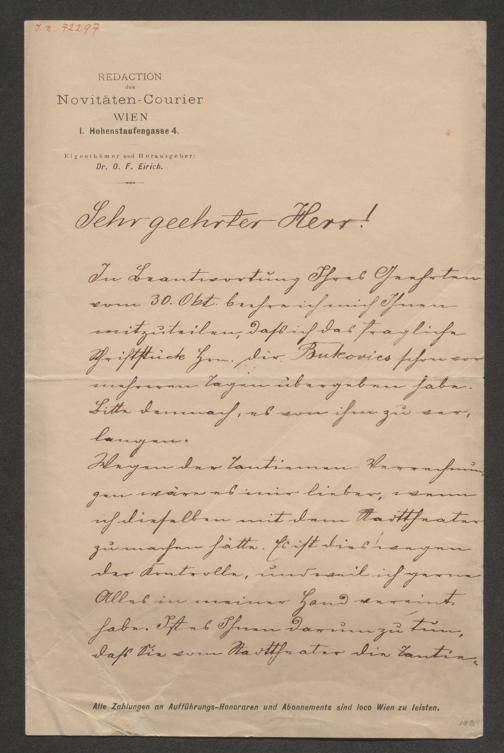 I. N. 92297
REDACTION
des
Novitäten-Courier
WIEN
I. Hohenstaufengasse 4.
Eigenthümer und Herausgeber:
Dr. O. F. Eirich.
Sehr geehrter Herr!
In Beantwortung Ihres Geehrten
vom 30. Okt. beehre ich mich Ihnen
mitzuteilen, daß ich das fragliche
Schriftstück Hrn. Dir. Bukovics schon vor
mehreren Tagen übergeben habe.
Bitte demnach, es von ihm zu ver-
langen.
Wegen der Tantiemen Verrechnun-
gen wäre es mir lieber, wenn
ich dieselben mit dem Stadttheater
zu machen hätte. Es ist dies wegen
der Kontrolle, und weil ich gerne
Alles in meiner Hand vereint
habe. Ist es Ihnen darum zu tun,
daß Sie vom Stadttheater die Tantie-
Alle Zahlungen an Aufführungs-Honoraren und Abonnements sind loco Wien zu leisten.